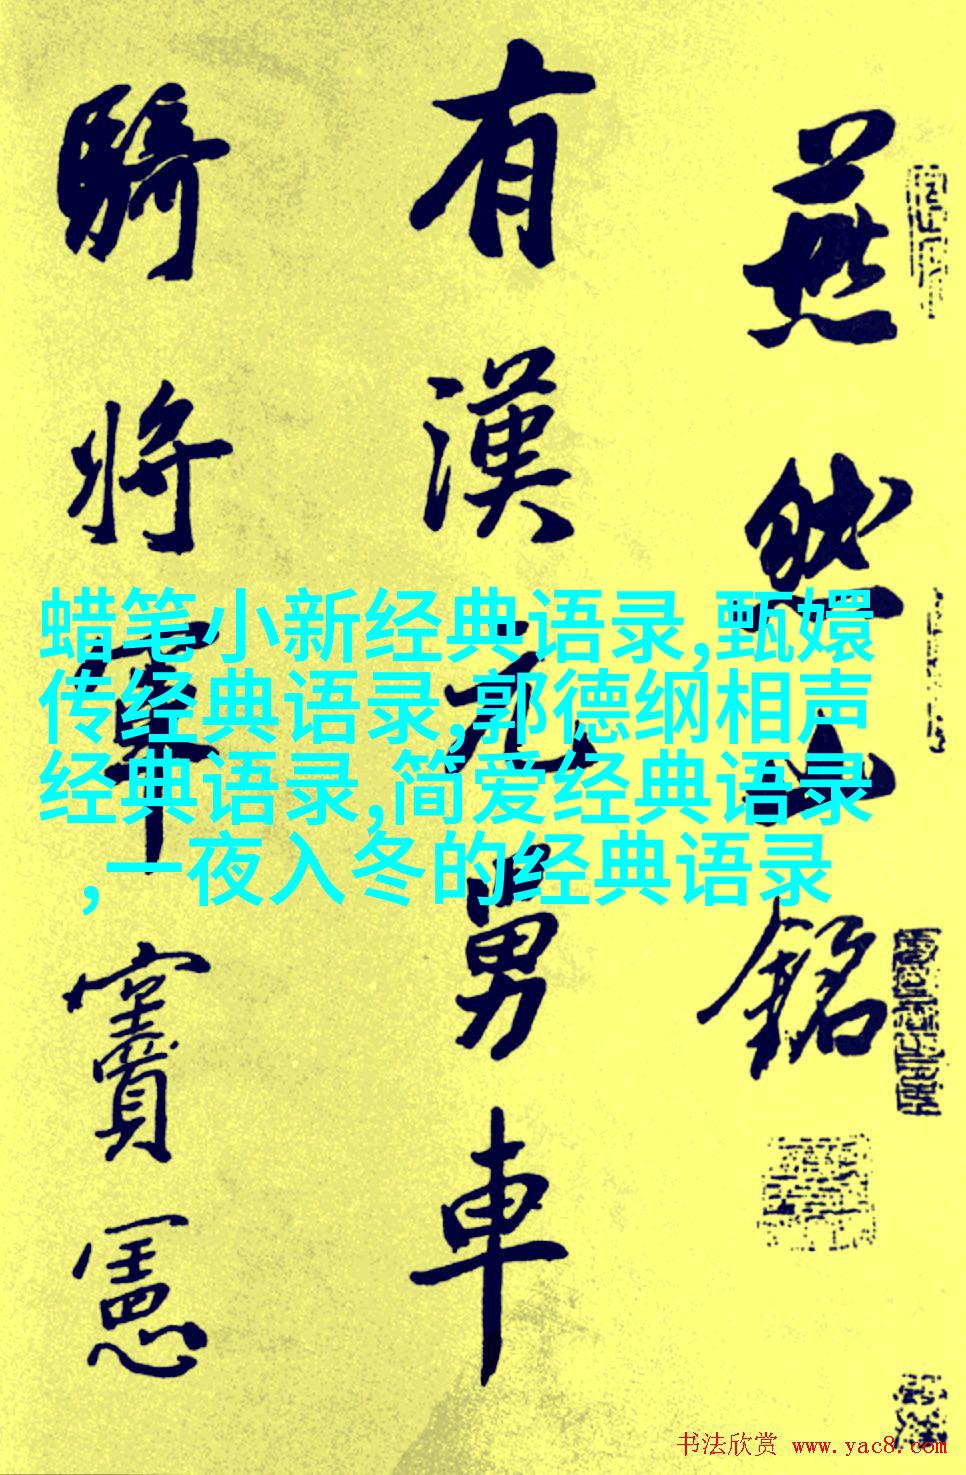 燕然山銘
有漢元舅車
騎將軍竇憲
蜡笔小新经典语录,甄嬛
传经典语录,郭德纲相声
经典语录,简爱经典语录
,一夜入冬的经典语录
书法欣赏 www.yac8.com